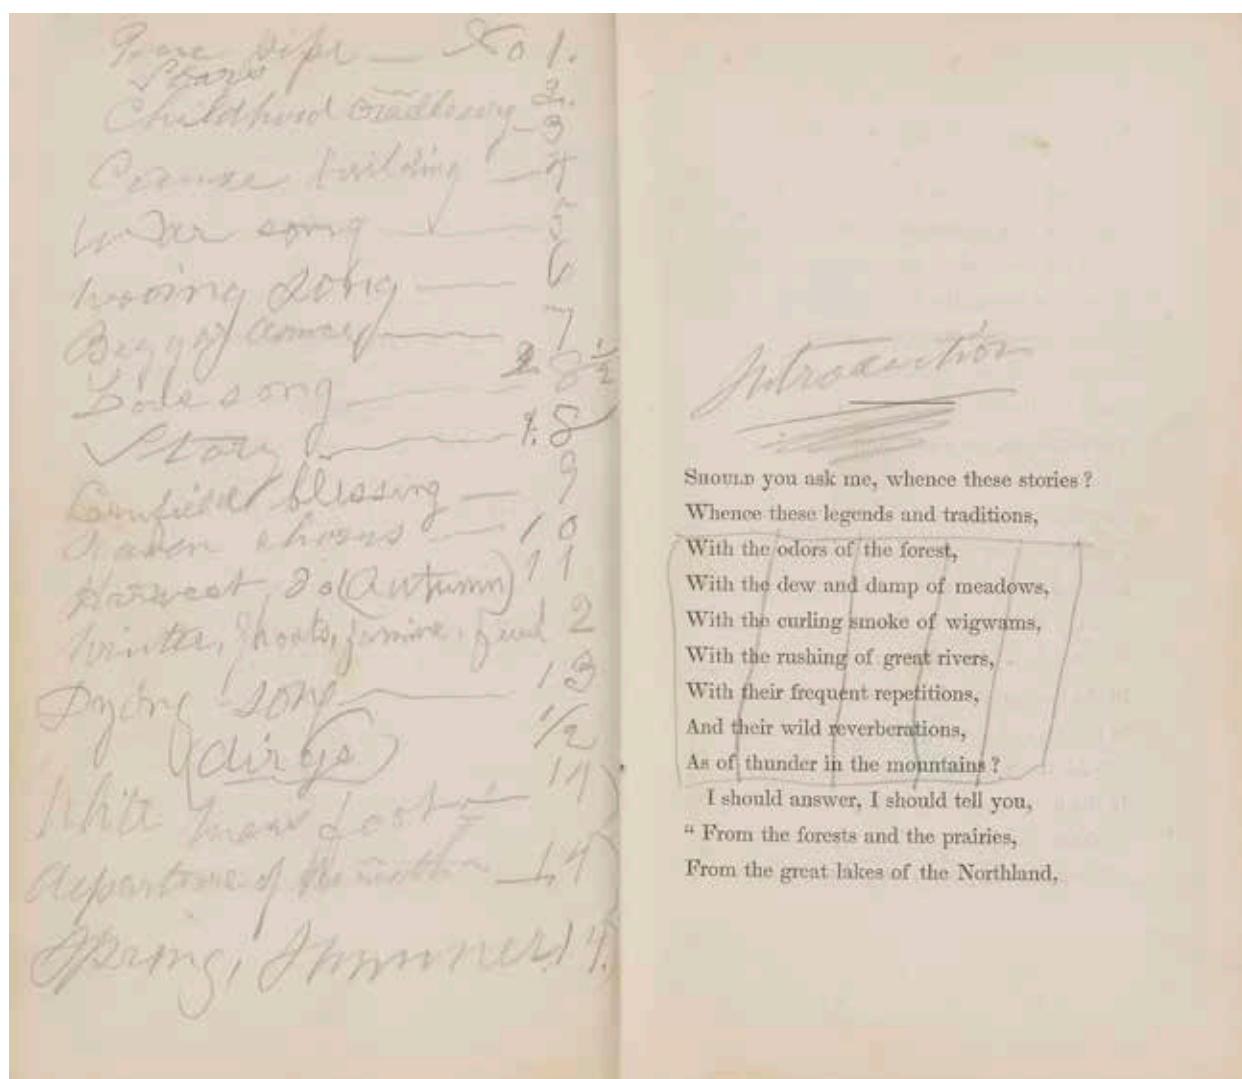 Peace Pipe — No 1.
Stars 2.
Childhood Cradlesong - 3
Canoe building — 4
War song — 5
Wooing Song — 6
Beggar — 7
song — 8 1/2
Story — 8
Cornfield blessing — 9
Raven chorus — 10
Harvest, (Autumn) 11
Winter, Ghosts, famine, 12
Dying song — 13
(dirge) 1/2
White man's foot — 14
departure of — 14
Spring, Summer 14.
Introduction
SHOULD you ask me, whence these stories?
Whence these legends and traditions,
With the odors of the forest,
With the dew and damp of meadows,
With the curling smoke of wigwams,
With the rushing of great rivers,
With their frequent repetitions,
And their wild reverberations,
As of thunder in the mountains?
I should answer, I should tell you,
“ From the forests and the prairies,
From the great lakes of the Northland,